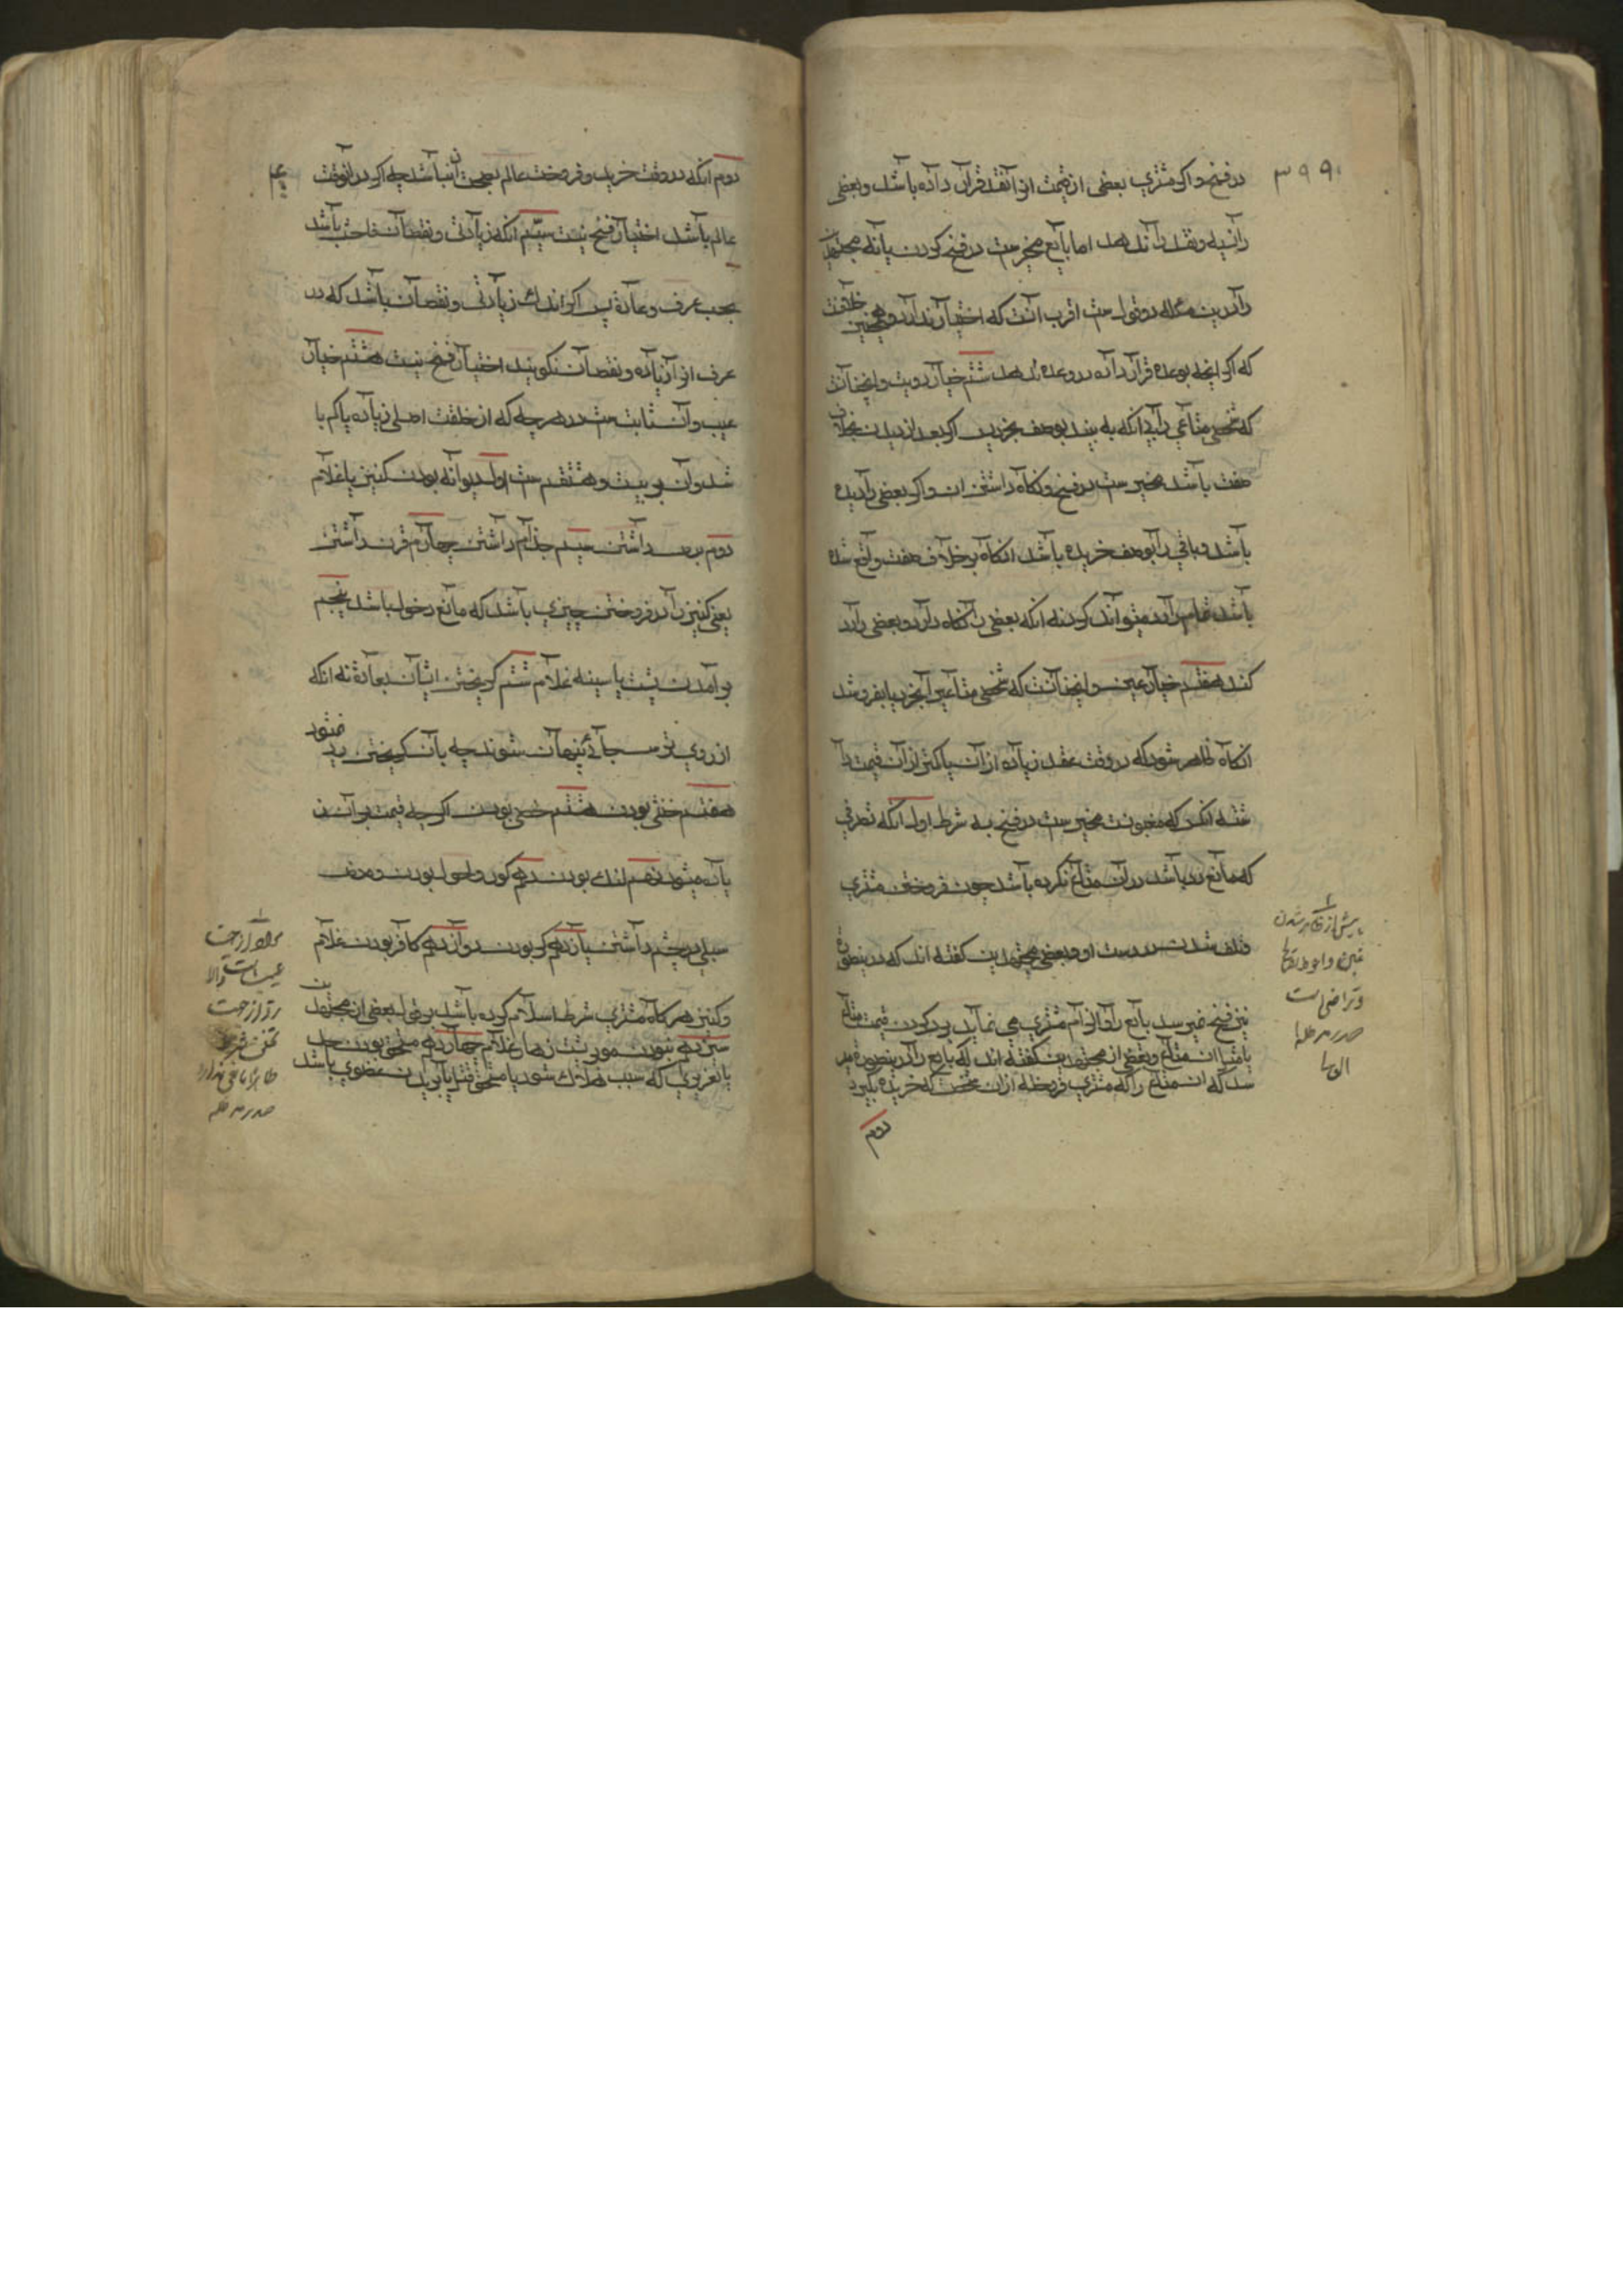 ۳۹۹
در فسخ و اگر مشتری بعضی از قیمت از آنقد قرار داده باشد و بعضی
را نسیه و نقد را ندهد اما بایع مخیرست در فسخ کردن یا نه مجتهدین
را درین مسأله دو قولست اقرب آنست که اختیار ندارد و همچنین خلافست
که اگر آنچه بوعده قرار داده در وعده ندهد ششم خیار رویت و این آنست
که شخصی متاعی را بی آنکه به بیند بوصف بخرد پس اگر بعد از دیدن بخلاف آن
صفت باشد مخیرست در فسخ و نگاه داشتن آن و اگر بعضی را دیده
باشد و باقی را بوصف خریده باشد آنگاه بر خلاف صفت واقع شده
باشد تمام را رد میتواند کرد نه آنکه بعضی را نگاه دارد و بعضی را رد
کند هفتم خیار غبن و این آنست که شخصی متاعی را بخرد یا بفروشد
آنگاه ظاهر شود که در وقت عقد زیاده از آن یا کمتر از آن قیمت داشته
آنکس که مغبونست مخیرست در فسخ بسه شرط اول آنکه تصرفی
که مانع رد باشد در آن متاع نکرده باشد چون فروختن مشتری
و تلف شدن در دست او و بعضی مجتهدین گفته اند که درینصورة
نیز فسخ میرسد بایع را و الزام مشتری می نماید برد کردن قیمت متاع
یا مثل آن متاع و بعضی از مجتهدین گفته اند که بایع را درینصورة میر
سد که آن متاع را که مشتری فروخته از آن شخص که خریده بگیرد
دوم
پیش از ظاهر شدن
غبن و احوط تصالح
و تراضی است
صدر مد ظله
العالی
دوم آنکه در وقت خرید و فروخت عالم بقیمت آن نباشد چه اگر در آنوقت
عالم باشد اختیار فسخ نیست سیّم آنکه زیادتی و نقصان فاحش باشد
بحسب عرف و عادة پس اگر اندک زیادتی و نقصان باشد که در
عرف آنرا زیاده و نقصان نگویند اختیار فسخ نیست هشتم خیار
عیب و آن ثابت ست در هر چه که از خلقت اصلی زیاده یا کم با
شد و آن بر بیست و هشت قسم ست اول دیوانه بودن کنیز یا غلام
دوم برص داشتن سیم جذام داشتن چهارم قرن داشتن
یعنی کنیز را در فرج چیزی باشد که مانع دخول باشد پنجم
بر آمدن پشت یا سینه غلام ششم گریختن ایشان بعادة نه آنکه
از روی ترس جائی پنهان شوند چه بآن گریختن رد نمیشود
هفتم خنثی بودن هشتم خصی بودن اگر چه قیمت بر آن ز
یاده میشود نهم لنگ بودن دهم کور و احول بودن و
سبل در چشم داشتن یازدهم کر بودن دوازدهم کافر بودن غلام
و کنیز هرگاه مشتری شرط اسلام کرده باشد بر قول بعضی از مجتهدین
سیزدهم نبودن موی پشت زهار غلام چهاردهم مستحق بودن حد
یا تعزیری که سبب هلاک شود یا مستحق قتل یا بریدن عضوی باشد
عیب است و الا
رد از جهت
صدر مد ظله